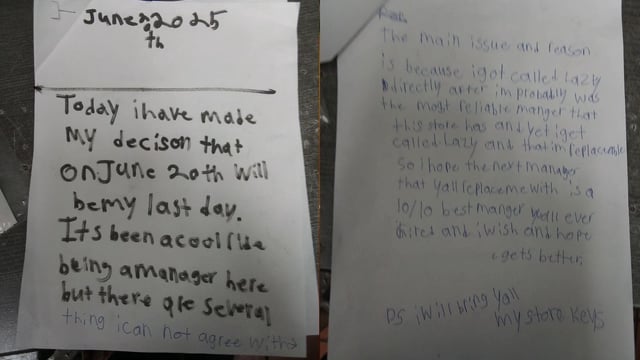 June 2025
th
Today i have made
my decison that
on June 20th will
be my last day.
Its been a cool ride
being a manager here
but there are several
thing i can not agree with
The main issue and reason
is because i got called Lazy
directly after im probably was
the most reliable manger that
this store has and yet i get
called Lazy and that im replaceable
so i hope the next manager
that yall replace me with is a
10/10 best manger yall ever
hired and i wish and hope
gets better.
PS i will bring yall
my store keys